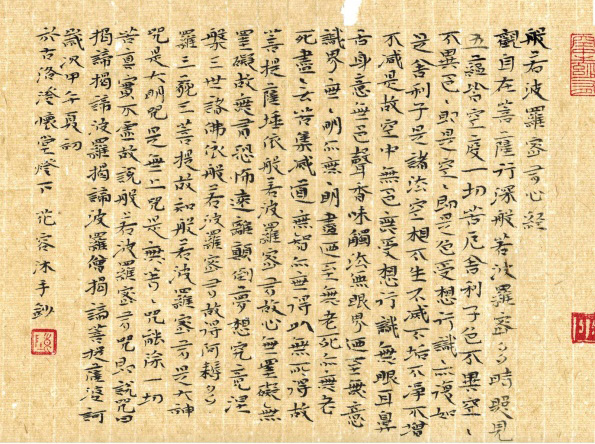 般若波羅蜜多心經
觀自在菩薩行深般若波羅蜜多時照見
五蘊皆空度一切苦厄舍利子色不異空、
不異色、即是空、即是色受想行識亦復如
是舍利子是諸法空相不生不滅不垢不淨不增
不減是故空中無色無受想行識無眼耳鼻
舌身意無色聲香味觸法無眼界乃至無意
識界無、明亦無、明盡乃至無老死亦無老
死盡無苦集滅道無智亦無得以無所得故
菩提薩埵依般若波羅蜜多故心無罣礙無
罣礙故無有恐怖遠離顛倒夢想究竟涅
槃三世諸佛依般若波羅蜜多故得阿耨多
羅三藐三菩提故知般若波羅蜜多是大神
咒是大明咒是無上咒是無等、咒能除一切
苦真實不虛故說般若波羅蜜多咒即說咒曰
揭諦揭諦波羅揭諦波羅僧揭諦菩提薩婆訶
歲次甲午夏初
於古洛澄懷堂燈下 容沐手鈔